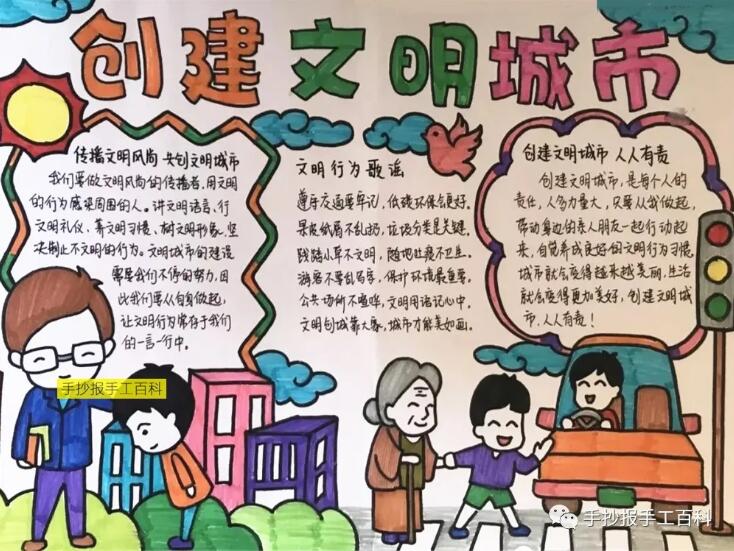 创建文明城市
传播文明风尚 共创文明城市
我们要做文明风尚的传播者,用文明
的行为感染周围的人。讲文明语言、行
文明礼仪、养文明习惯、树文明形象,坚
决制止不文明的行为。文明城市的建设
需要我们不停的努力,因
此我们要从自身做起,
让文明行为常存于我们
的一言一行中。
文明行为歌谣
遵守交通要牢记,低碳环保会更好。
果皮纸屑不乱扔,垃圾分类是关键。
践踏小草不文明,随地吐痰不卫生。
游客不要乱写字,保护环境最重要。
公共场所不喧哗,文明用语记心中。
文明创城靠大家,城市才能美如画。
创建文明城市 人人有责
创建文明城市,是每个人的
责任,人多力量大,只要从我做起,
带动身边的亲人朋友一起行动起
来,自觉养成良好的文明行为习惯,
城市就会变得越来越美丽,生活
就会变得更加美好,创建文明城
市,人人有责!
手抄报手工百科
手抄报手工百科